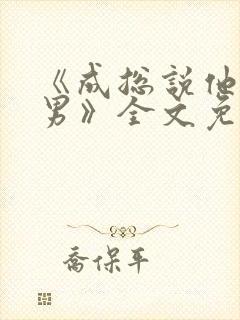 《成总説他
男》全文免
喬保平